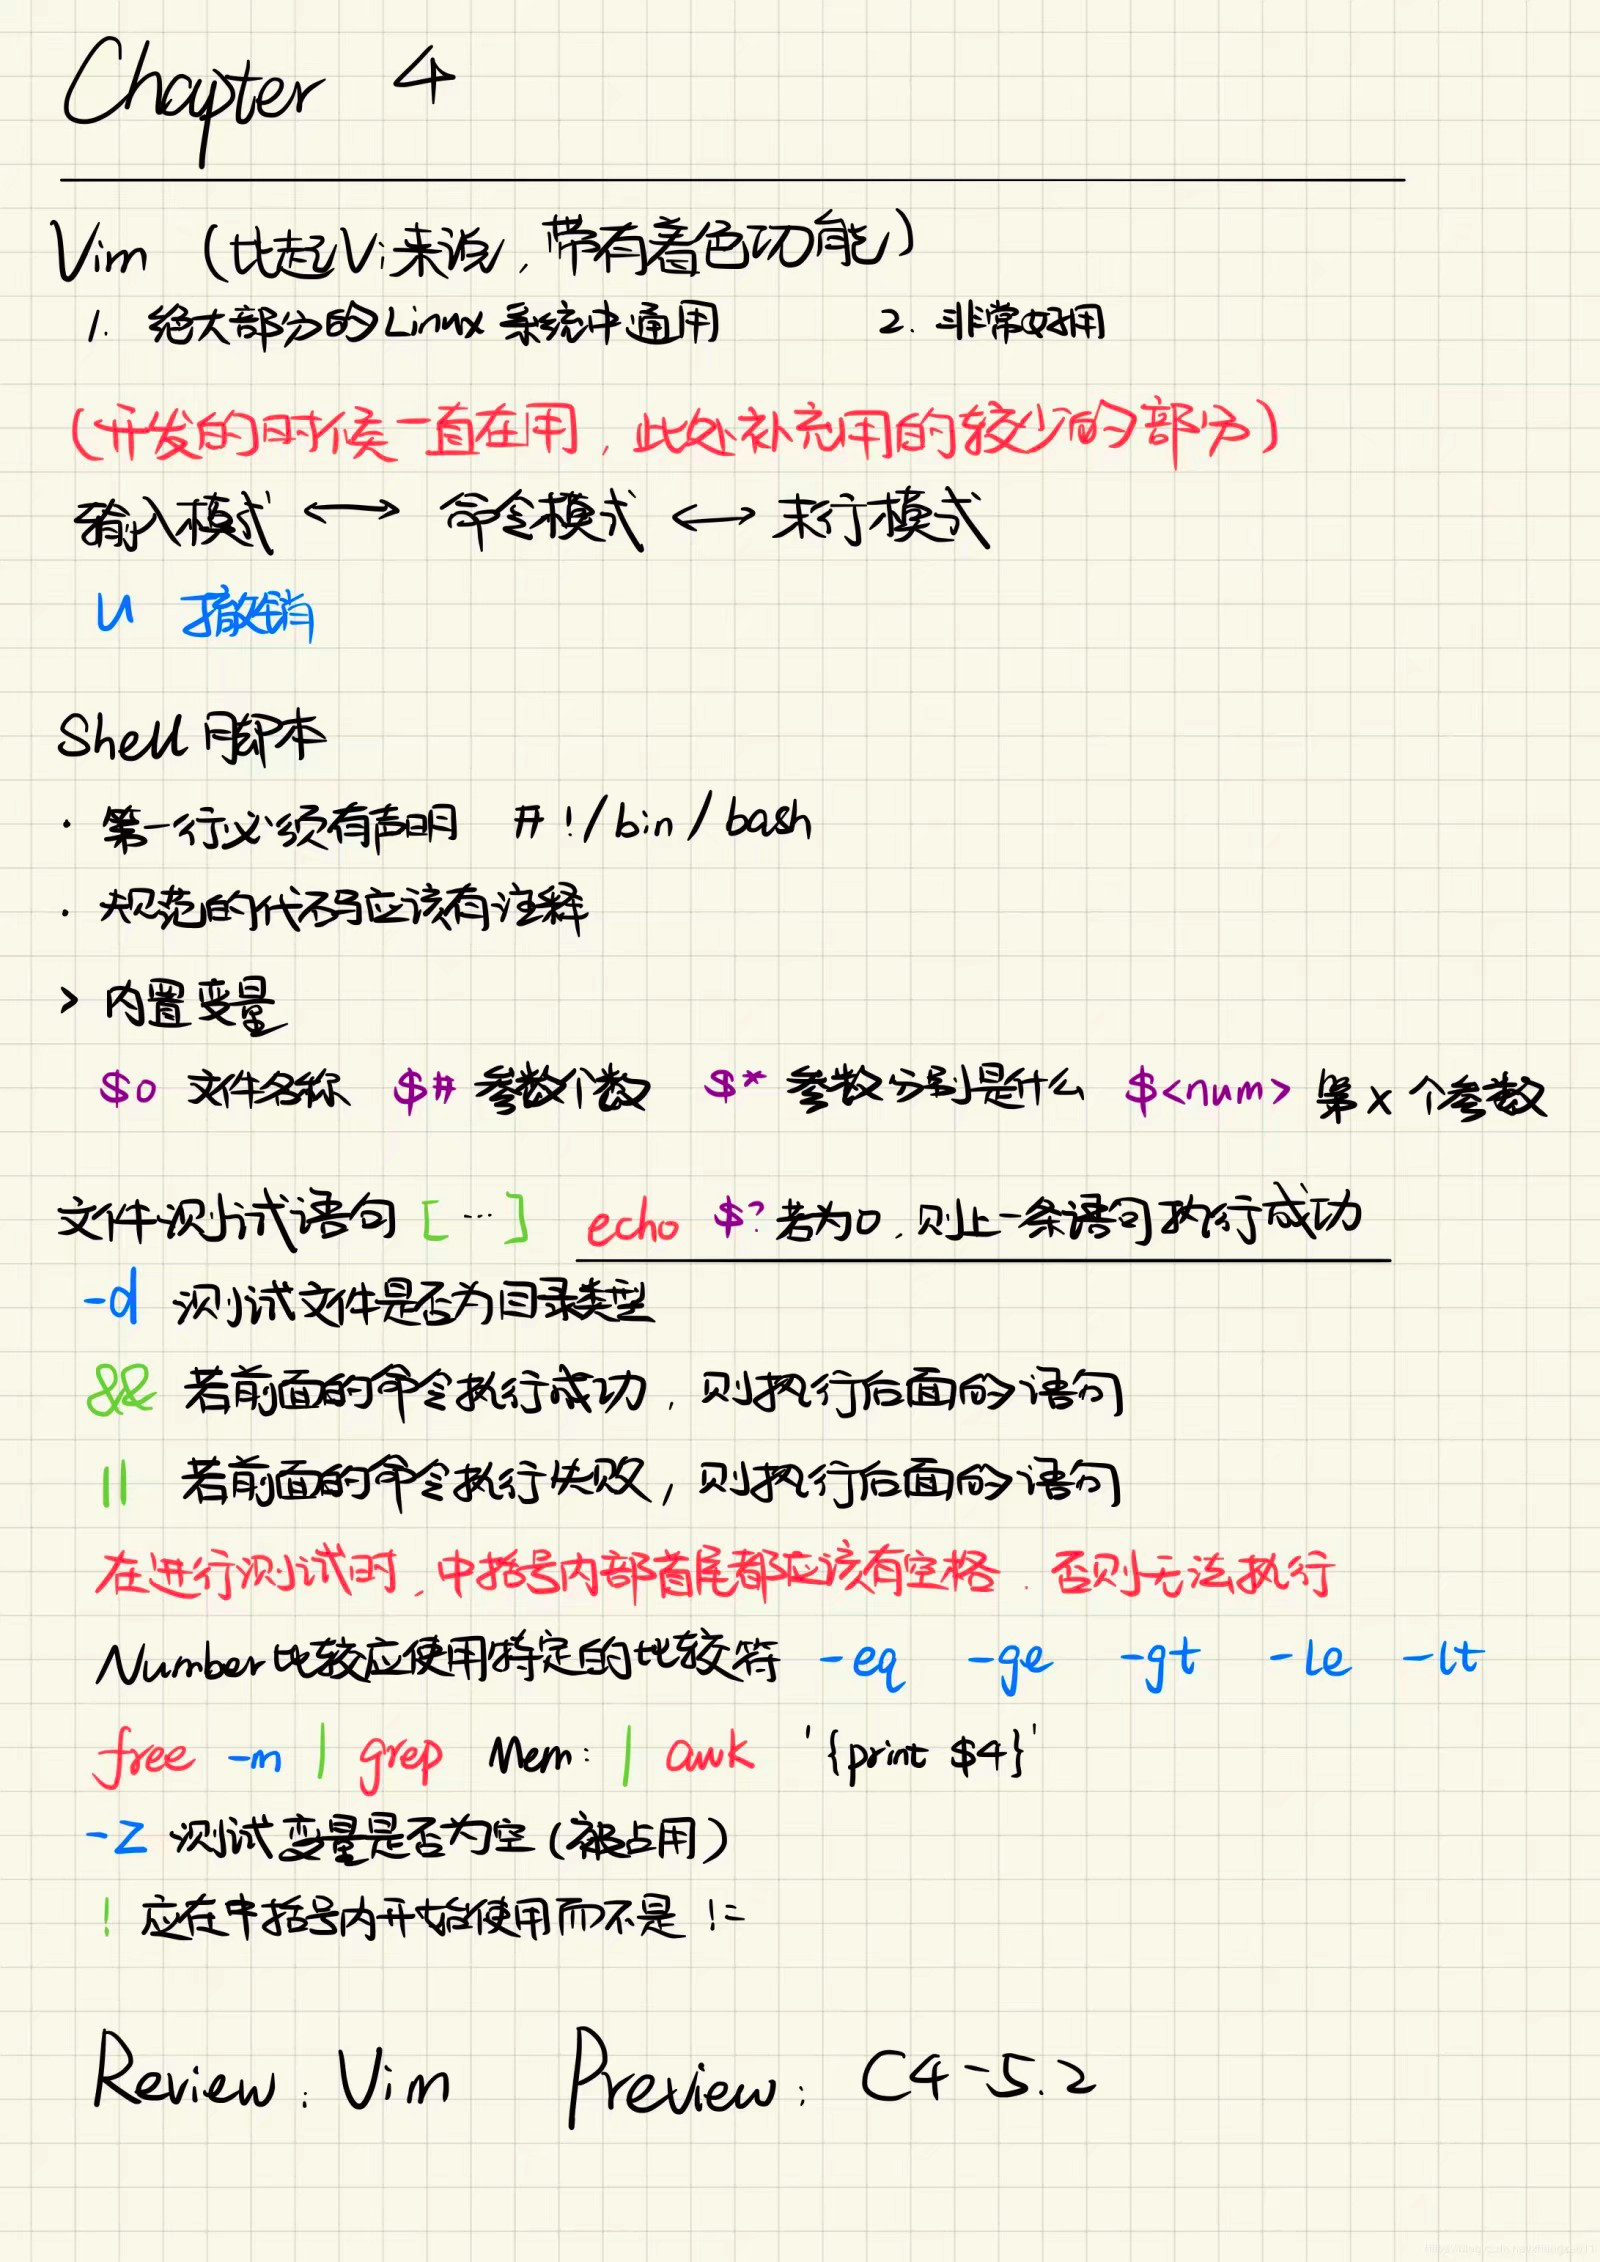 Chapter 4
Vim (比起Vi来说,带有着色功能)
1. 绝大部分的Linux系统中通用 2. 非常好用
(开发的时候一直在用,此处补充用的较少的部分)
输入模式 ⟷ 命令模式 ⟷ 末行模式
u 撤销
Shell脚本
· 第一行必须有声明 #!/bin/bash
· 规范的代码应该有注释
> 内置变量
$0 文件名称 $# 参数个数 $* 参数分别是什么 $<num> 第x个参数
文件测试语句 [ … ] echo $? 若为0,则上一条语句执行成功
-d 测试文件是否为目录类型
&& 若前面的命令执行成功,则执行后面的语句
|| 若前面的命令执行失败,则执行后面的语句
在进行测试时,中括号内部首尾都应该有空格.否则无法执行
Number比较应使用特定的比较符 -eq -ge -gt -le -lt
free -m | grep Mem: | awk '{print $4}'
-z 测试变量是否为空(被占用)
! 应在中括号内开始使用而不是 !=
Review: Vim Preview: C4-5.2